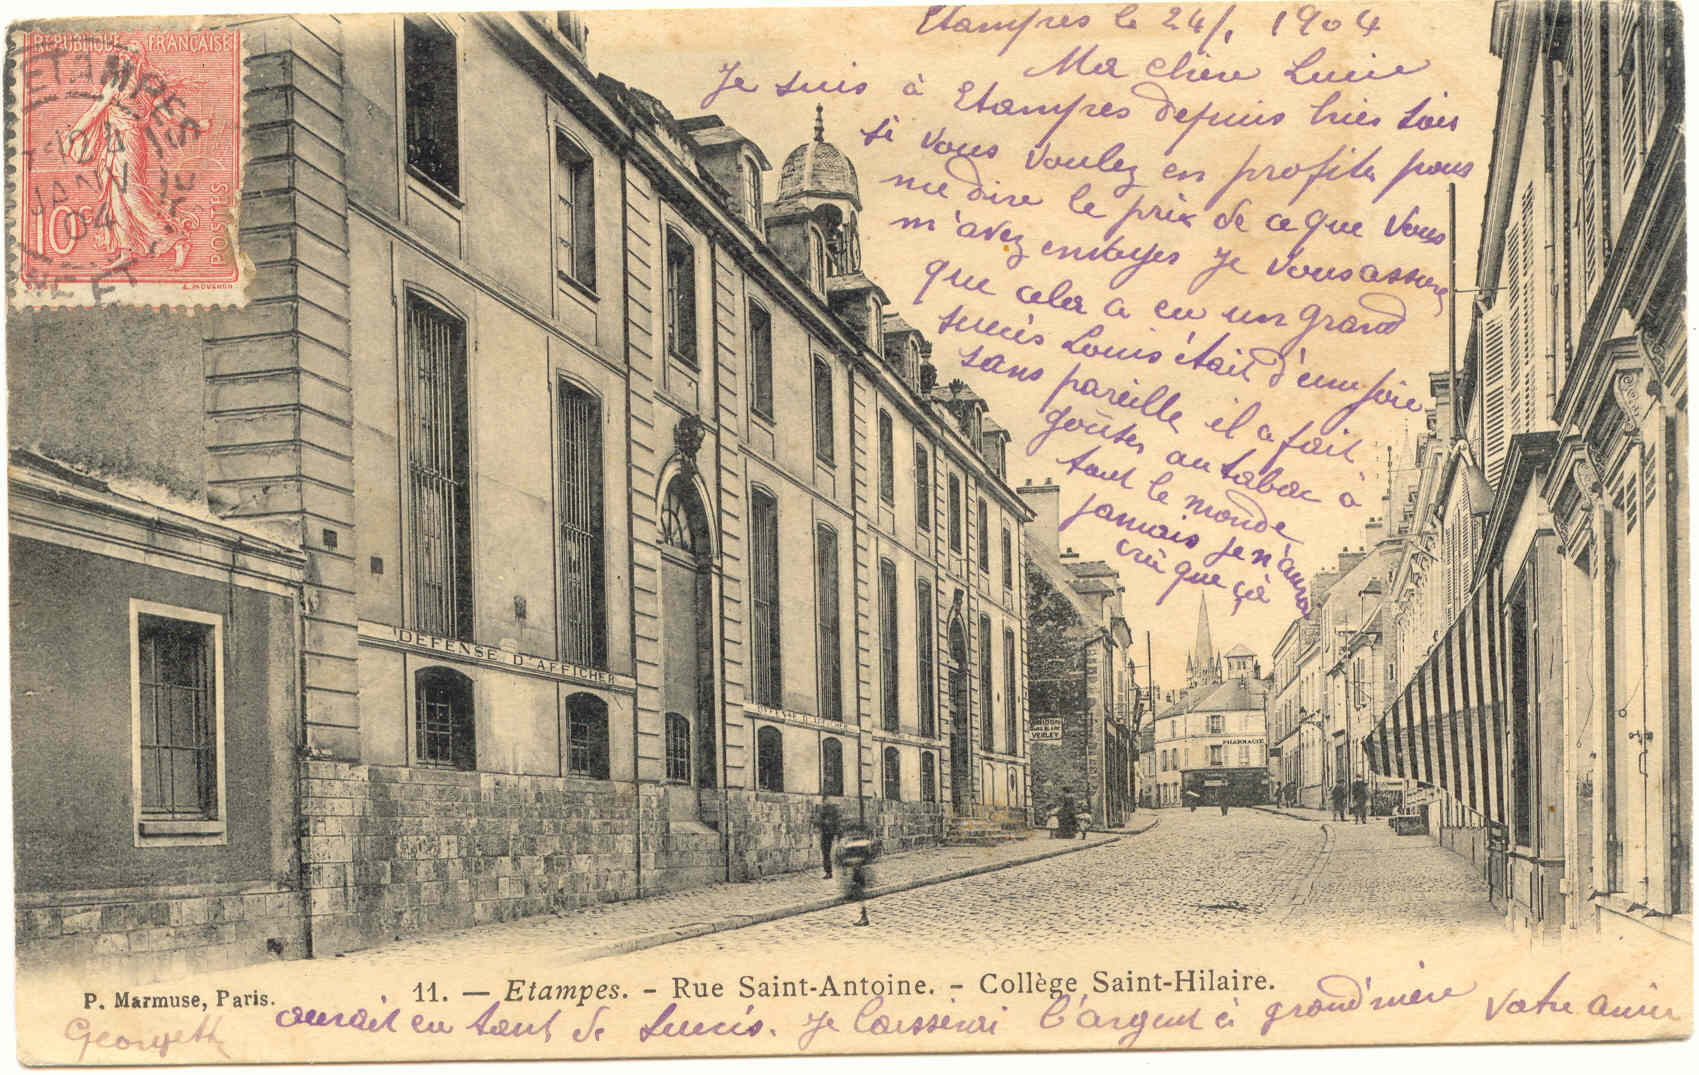 REPUBLIQUE FRANÇAISE
ETAMPES
JANV
04
10c
POSTES
L. MOUCHON
Etampes le 24/1 1904
Ma chère Lucie
Je suis à Etampes depuis hier soir
si vous voulez en profiter pour
me dire le prix de ce que vous
m'avez envoyer je vous assure
que cela a eu un grand
succès Louis était d'une joie
sans pareille il a fait
goûter au tabac à
tout le monde
jamais je n'aurai
crû que çà
DEFENSE D'AFFICHER
DEFENSE D'AFFICHER
VERLET
PHARMACIE
P. Marmuse, Paris.
11. — Etampes. - Rue Saint-Antoine. - Collège Saint-Hilaire.
aurait eu tant de succès. Je laisserai l'argent à grand'mère Votre amie
Georgette